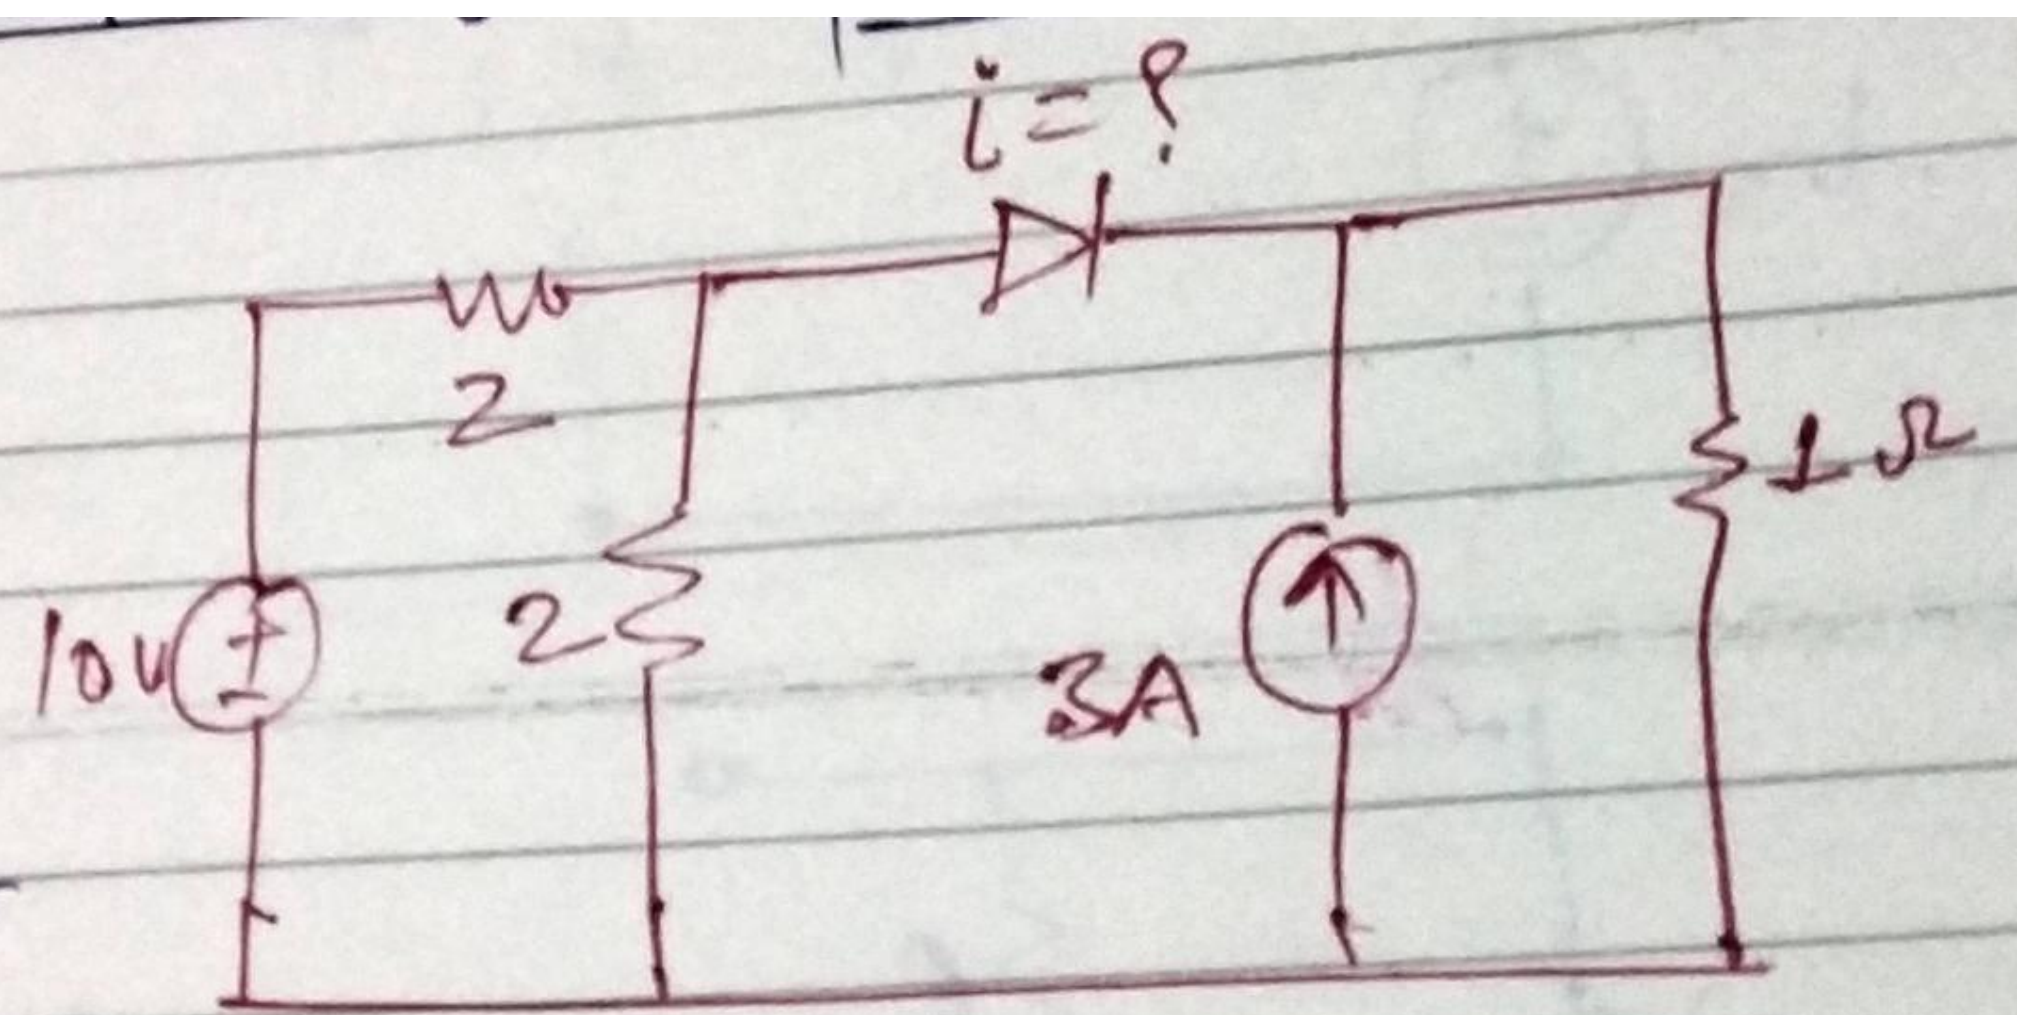 i = ?
2
1Ω
10V
2
3A